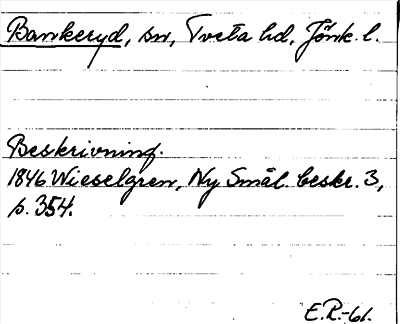 Bankeryd, sn, Tveta hd, Jönk. l.
Beskrivning.
1846 Wieselgren, Ny Smål. beskr. 3,
s. 354.
E.R.-61.